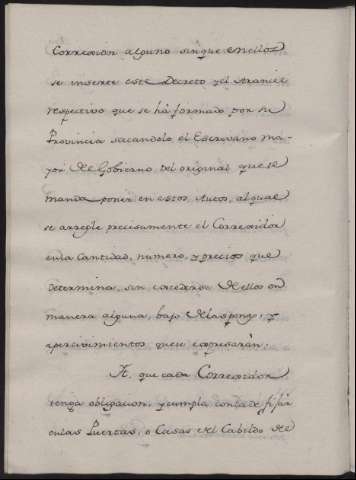 Corregidor alguno sinque en ellos
se inserte este Decreto y el Arancel
respectivo que se há formado por su
Provincia sacandolo el Escrivano ma-
yor de Gobierno del original que se
manda poner en estos Autos, alqual
se arregle precisamente el Corregidor
en la Cantidad, numero, y precios que
determina, sin excederse de ellos en
manera alguna, bajo de las penas, y
apercivimientos que se expresarán.
A. que cada Corregidor
tenga obligacion, y cumpla con la de fijar
en las Puertas, o Casas del Cabildo de